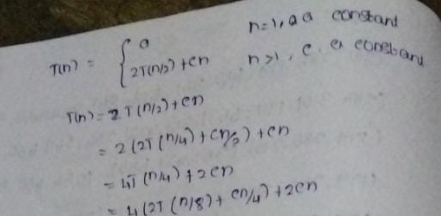 T(n) = { a n=1, a a constant
2T(n/2) + cn n>1, c a constant
T(n) = 2T(n/2) + cn
= 2(2T(n/4) + cn/2) + cn
= 4T(n/4) + 2cn
= 4(2T(n/8) + cn/4) + 2cn